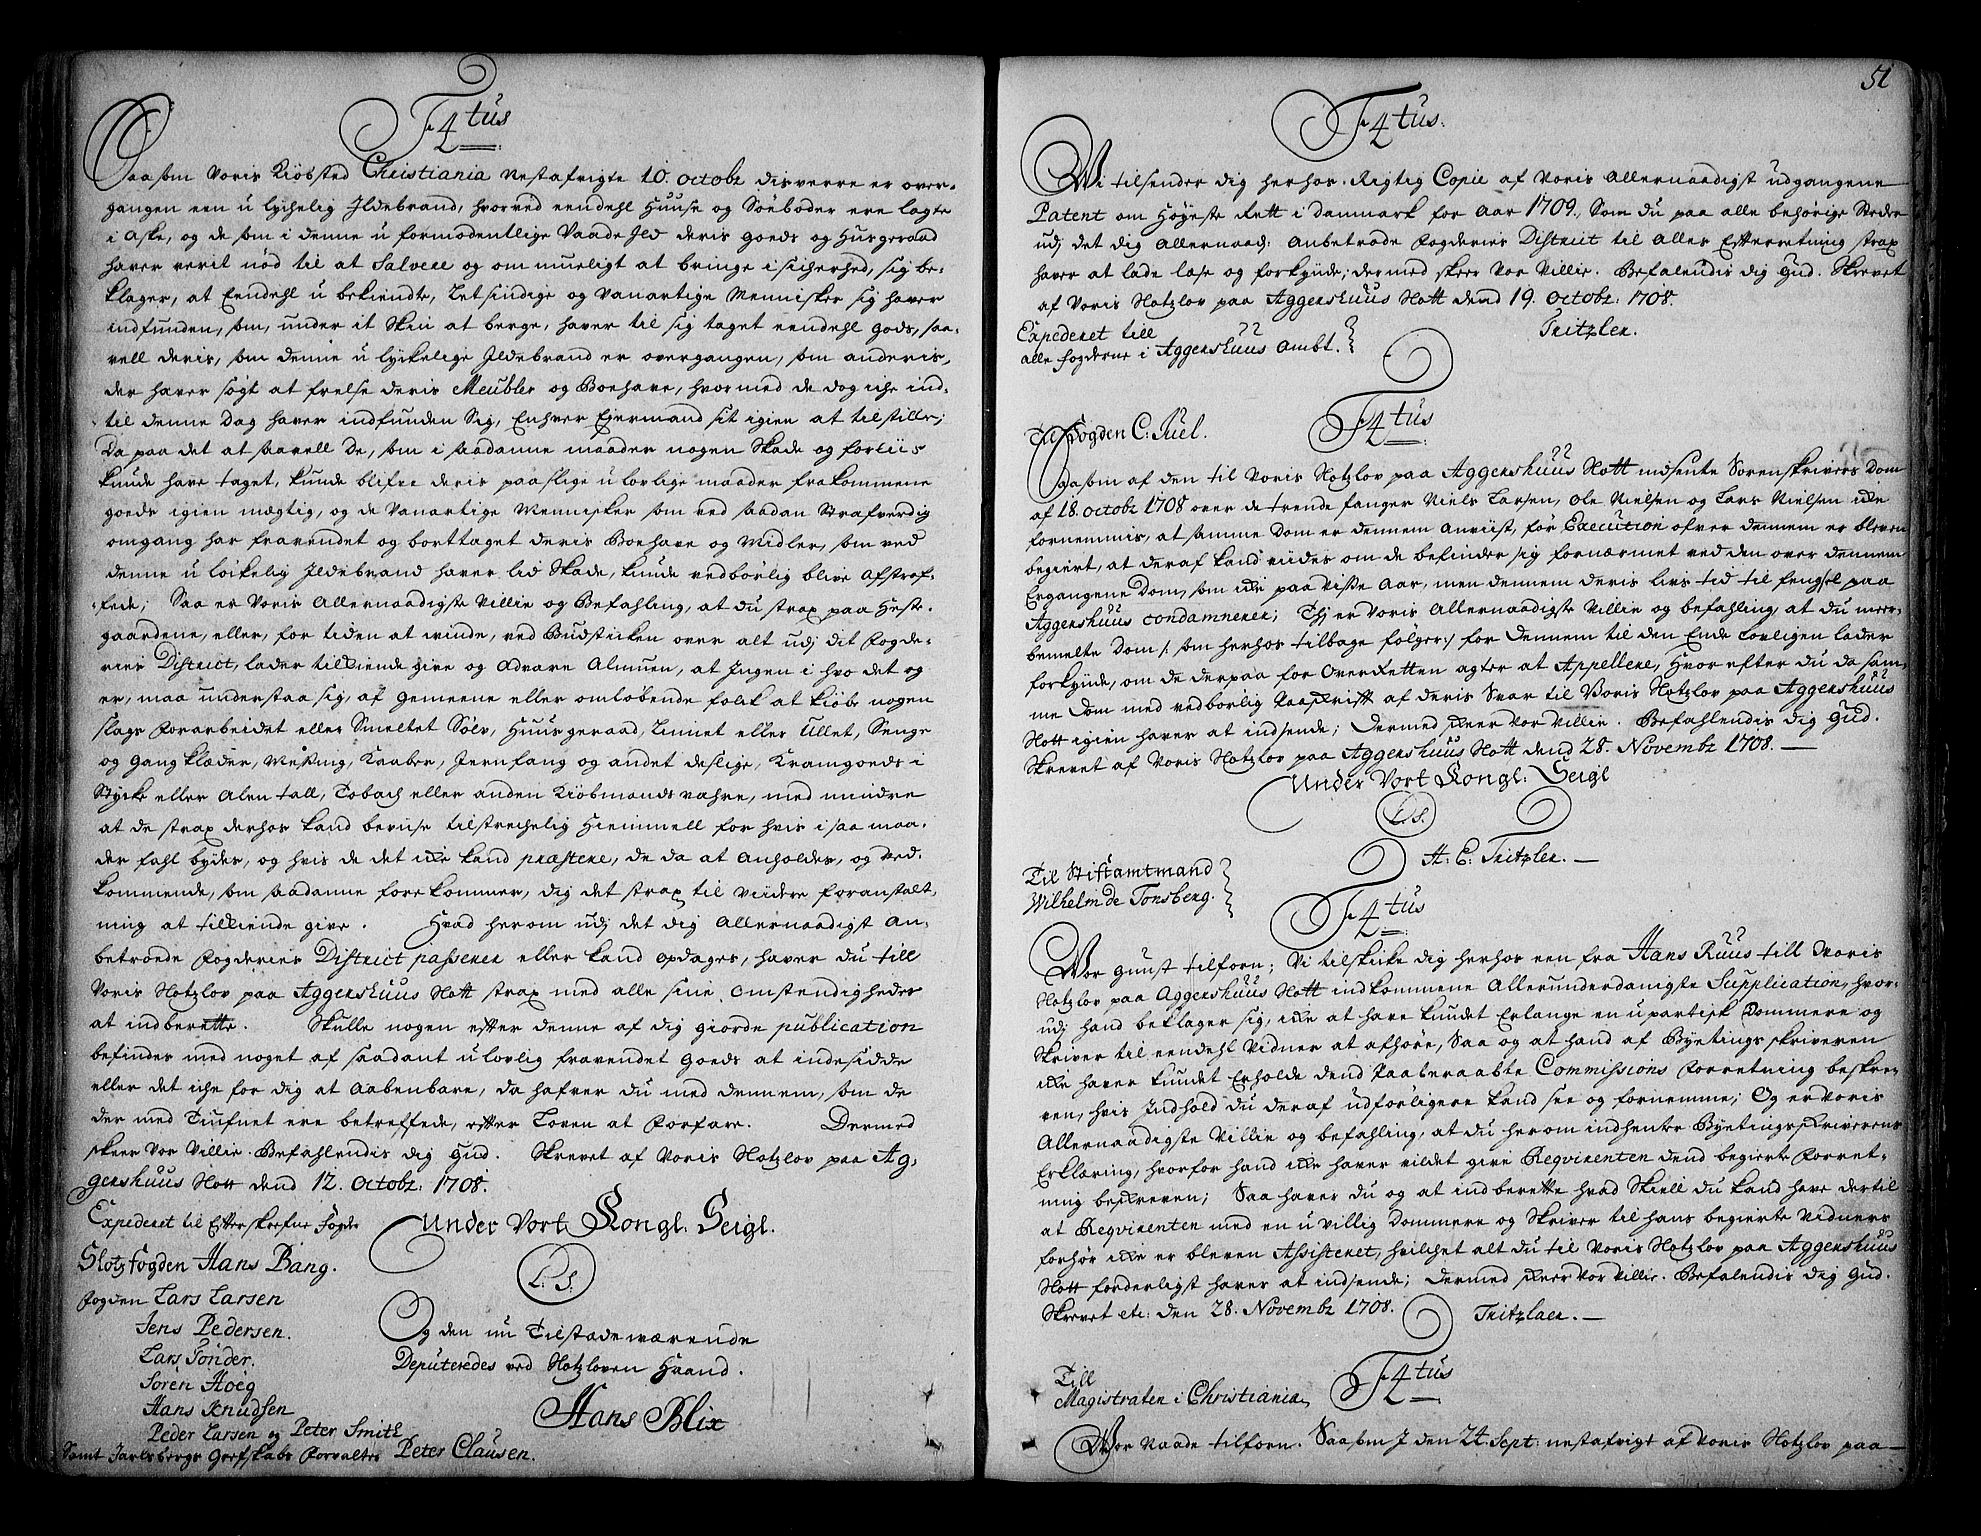 F4tus
Saasom Voris Kiöbsted Christiania nestafvigte 10. octobr disverre er over-
gangen een u lychelig Ildebrand, hvorved eendehl Huuse og Söeboder ere lagte
i Aske, og de som i denne u formodentlige Vaade Ild deris goeds og Husgeraad
haver verit nöd til at Salvere og om mueligt at bringe i sicherhed, sig be-
klager, at Eendehl u bekiendte, Letsindige og Vanartige Mennisker sig haver
indfunden, som, under it Skin at berge, haver til sig taget eendehl gods, saa-
vell deris, som denne u lykelige Ildebrand er overgangen, som anderis,
der haver søgt at frelse deris Meubler og Boehave, hvormed de dog iche ind-
til denne Dag haver indfunden Sig, Enhver Ejermand sit igien at tilstille;
Da paa det at saavell De, som i saadanne maader nogen Skade og forliis
kunde have taget, kunde blifve deris paa slige u lovlige maader frakommene
goeds igien mægtig, og de Vanartige Mennisker som ved saadan Strafverdig
omgang har fravendet og borttaget deris Boehave og Midler, som ved
denne u löikelig Ildebrand haver lid Skade, kunde vedbörlig blive Afstraf-
fede; Saa er Voris Allernaadigste Villie og Befahling, at du strax paa Heste-
gaardene, eller, for tiden at vinde, ved Budsticken over alt udj dit Fogde-
ries District, lader tilkiende give og Advare Almuen, at Ingen i hvo det og
er, maa understaa sig, af gemeene eller omlöbende folk at kiöbe nogen
slags Forarbeidet eller Smeltet Sölv, Huusgeraad, Linnet eller Ullet, Senge
og gangklæder, Messing, Kaaber, Jernfang og andet deslige, Kramgoeds i
Stycke eller Alen tall, Tobach eller anden Kiöbmandsvahre, med mindre
at de strax derhos kand beviise tilstrechelig Hiemmell for hvis i saa maa-
der fahl bydes, og hvis de det icke kand præstere, de da at Anholdes, og Ved-
kommende, som saadanne forekommer, dig det strax til viidere foranstalt-
ning at tilkiende give. Hvad herom udj det dig Allernaadigst an-
betroede Fogderies District passerer eller kand opdages, haver du till
Voris Slotzlov paa Aggershuus Slott strax med alle sine omstendigheder
at indberette. Skulle nogen efter denne af dig giorde publication
befindes med noget af saadant ulovlig fravendet goeds at indesidde
eller det iche for dig at Aabenbare, da hafver du med dennem, som de
der med Tiufnet ere betreffede, efter Loven at Forfare. Dermed
skeer Vor Villie. Befahlendis dig Gud. Skrevet af Voris Slotzlov paa Ag-
gershuus Slott dend 12. Octobr: 1708.
Expederet til Efterskrefne Fogder
Under Vort Kongl. Seigl.
Slotzfogden Hans Bang.
L. S.
Fogden Lars Larsen
Jens Pedersen.
Lars Tönder.
Sören Höeg
Hans Knudsen
Peder Larsen og Peter Smith
Samt Jarlsbergs Grefskabs Forvalter Peter Clausen.
Og den nu Tilstædeværende
Deputeredes ved Slotzloven Haand.
Hans Blix
51
F4tus.
Wi tilsender dig herhos Rigtig Copie af Voris Allernaadigst udgangene
Patent om Høyeste Rett i Danmark for Aar 1709., Som du paa alle behörige Steder
udj det dig Allernaad: anbetrode Fogderies District til Alles Efterretning strax
haver at lade læse og forkynde; dermed skeer Vor Villie. Befalendis dig Gud. Skrevet
af Voris Slotzlov paa Aggershuus Slott dend 19. Octobr: 1708.
Tritzler.
Expederet till
alle fogderne i Aggershuus ambt.
F4tus
Til Fogden C: Juel.
Saasom af den til Voris Slotzlov paa Aggershuus Slott indsente Sorenskrivers Dom
af 18. octobr 1708 over de trende fanger Niels Larsen, Ole Nielsen og Lars Nielsen icke
fornemmis, at samme Dom er dennem Anviist, för Execution ofver dennem er bleven
begiert, at deraf kand viides om de befinder sig fornærmet ved den over dennem
Ergangene Dom, som icke paa Visse Aar, men dennem deris livs tid til fengsel paa
Aggershuus condamnerer; Thj er Voris Allernaadigste Villie og befahling, at du meer-
bemelte Dom /: som herhos tilbage fölger :/ for dennem til den Ende Lovligen lader
forkynde, om de derpaa for OverRetten agter at Appellere, Hvorefter du da sam-
me Dom med vedbörlig Paaskrift af deris Svar til Voris Slotzlov paa Aggershuus
Slott igien haver at indsende; Dermed skeer Vor Villie. Befahlendis dig Gud.
Skrevet af Voris Slotzlov paa Aggershuus Slott dend 28. Novembr 1708.
Under Vort Kongl. Seigl
L. S.
A: E: Tritzler.
Til Stiftamtmand
Wilhelm de Tonsberg.
F4tus
Vor gunst tilforn; Vi tilskicke dig herhos een fra Hans Ruus till Voris
Slotzlov paa Aggershuus Slott indkommene Allerunderdanigste Supplication, hvor-
udj hand beklager sig, icke at have kundet Erlange en upartisk Dommere og
Skriver til eendehl Vidner at afhøre, Saa og at hand af Byetings skriveren
icke haver kundet Erholde dend Paaberaabte Commissions Forretning beskre-
ven, hvis Indhold du deraf udförligere kand see og fornemme; Og er Voris
Allernaadigste Villie og befahling, at du herom indhenter Byetingsskriverens
Erklæring, hvorfor hand icke haver vildet give Reqvirenten dend begierte Forret-
ning beskreven; Saa haver du og at indberette hvad Skiell du kand have dertil
at Reqvirenten med en u villig Dommere og Skriver til hans begierte Vidners
forhör icke er bleven Assisteret, hvilchet alt du til Voris Slotzlov paa Aggershuus
Slott forderligst haver at indsende; Dermed skeer Vor Villie. Befalendis dig Gud.
Skrevet etc: den 28. Novembr 1708.
Tritzler.
Till
Magistraten i Christiania
F4tus
Vor Naade tilforn. Saasom I den 24. Sept: nestafvigt af Voris Slotzlov paa